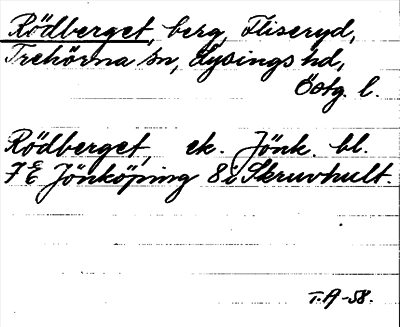 Rödberget, berg, Fliseryd,
Trehörna sn, Lysings hd,
Östg. l.
Rödberget, ek. Jönk. bl.
7E Jönköping 8i Skruvhult.
T.A-58.